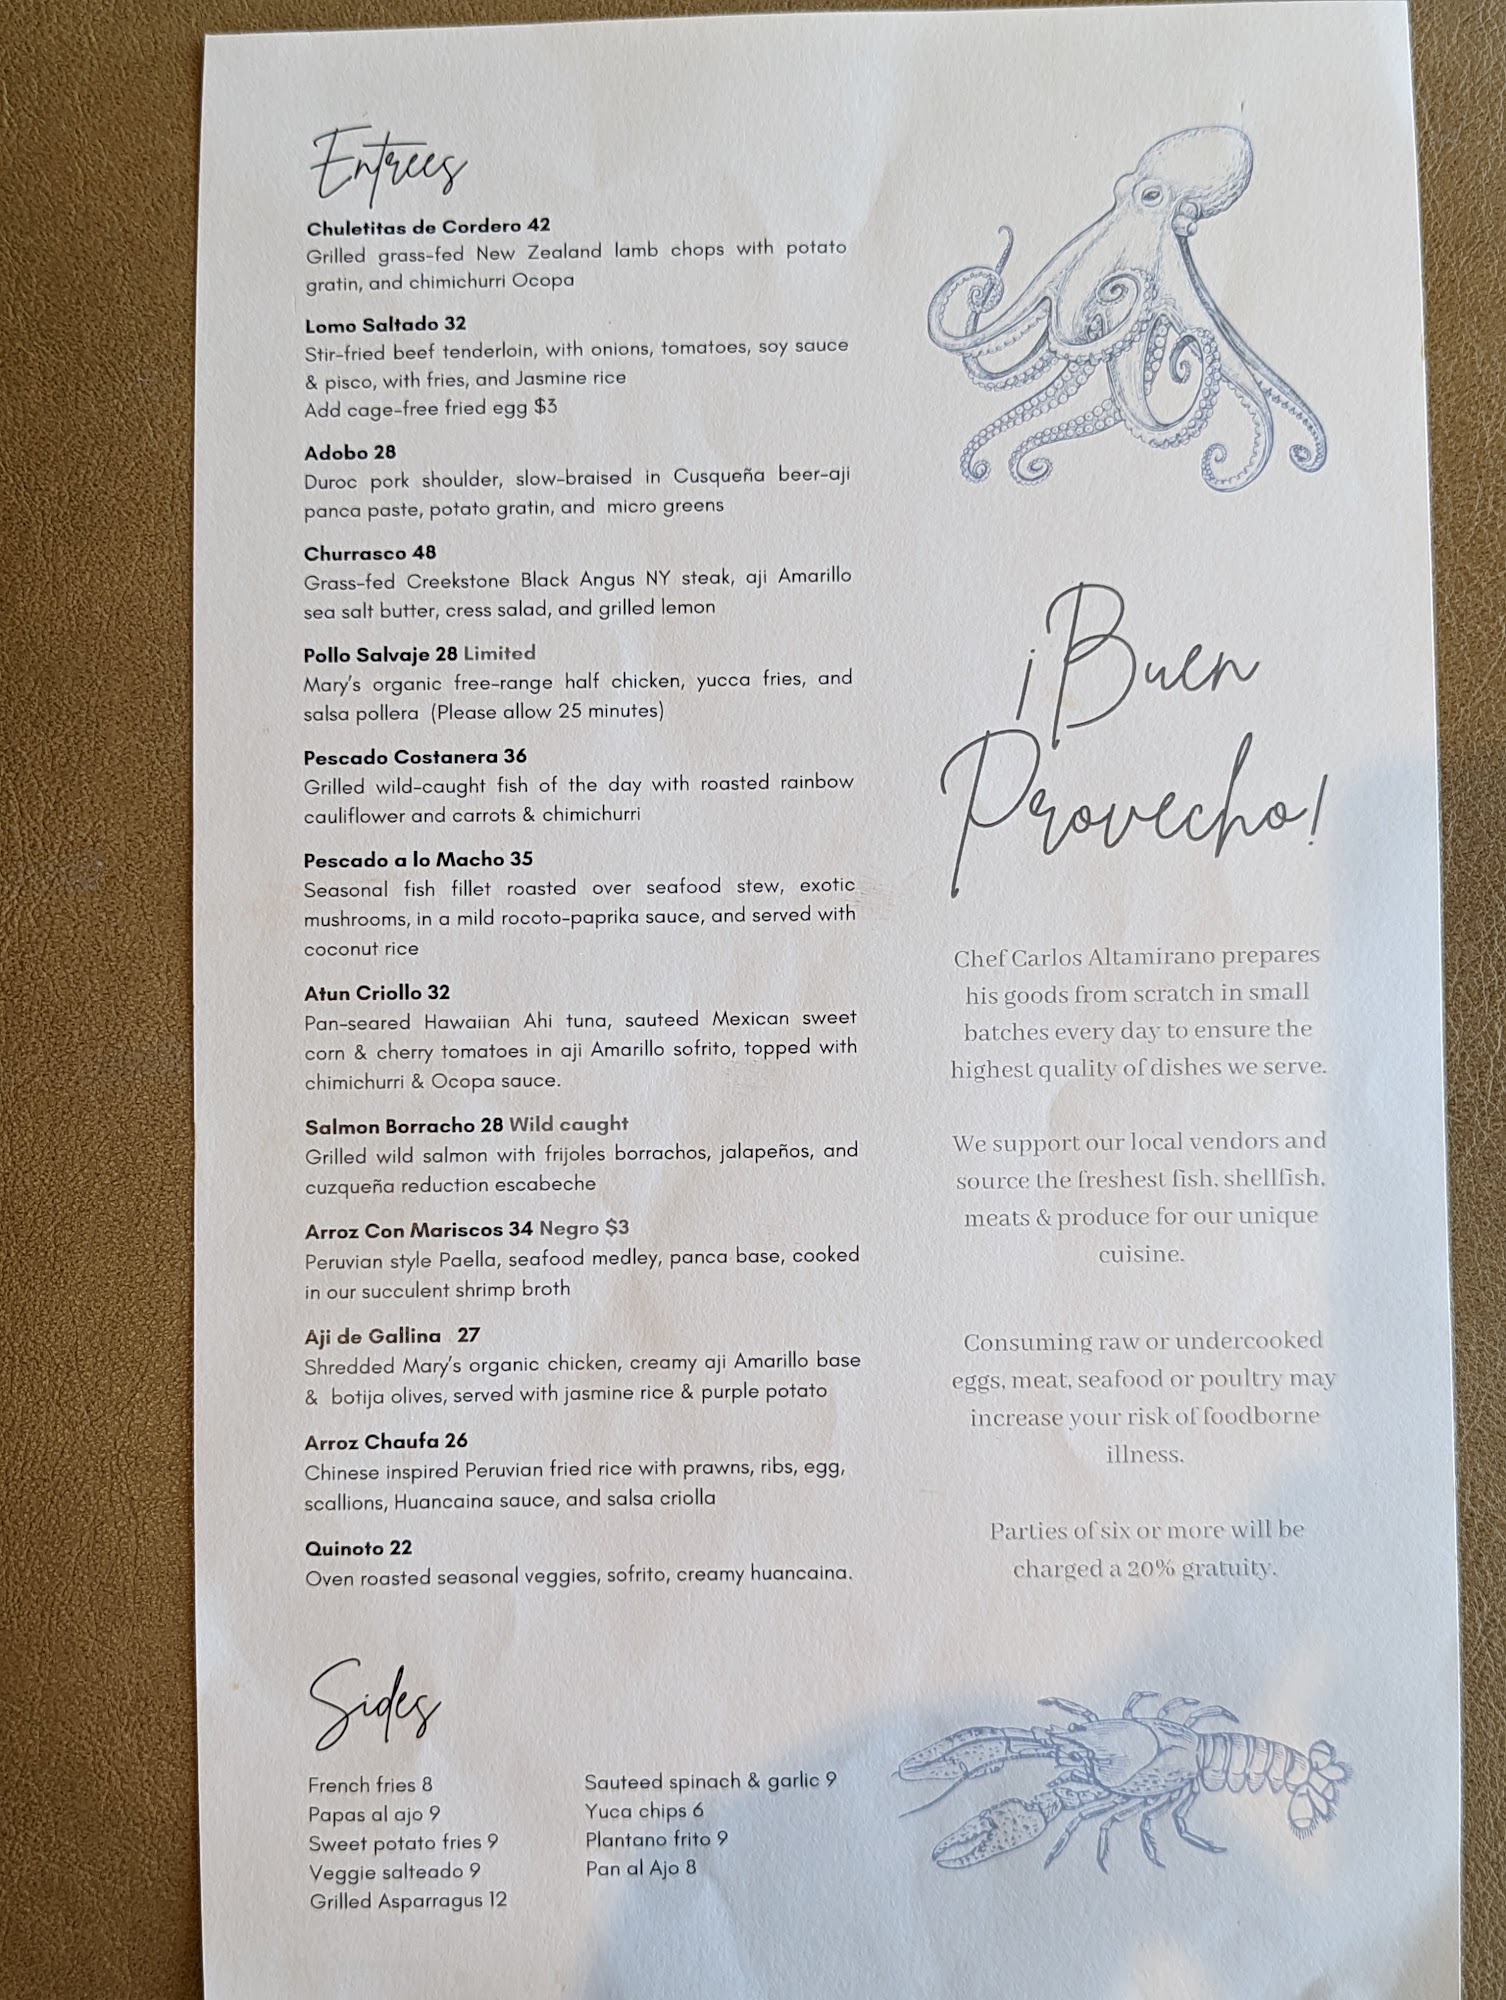 Entrees
Chuletitas de Cordero 42
Grilled grass-fed New Zealand lamb chops with potato
gratin, and chimichurri Ocopa
Lomo Saltado 32
Stir-fried beef tenderloin, with onions, tomatoes, soy sauce
& pisco, with fries, and Jasmine rice
Add cage-free fried egg $3
Adobo 28
Duroc pork shoulder, slow-braised in Cusqueña beer-aji
panca paste, potato gratin, and micro greens
Churrasco 48
Grass-fed Creekstone Black Angus NY steak, aji Amarillo
sea salt butter, cress salad, and grilled lemon
Pollo Salvaje 28 Limited
Mary's organic free-range half chicken, yucca fries, and
salsa pollera (Please allow 25 minutes)
Pescado Costanera 36
Grilled wild-caught fish of the day with roasted rainbow
cauliflower and carrots & chimichurri
Pescado a lo Macho 35
Seasonal fish fillet roasted over seafood stew, exotic
mushrooms, in a mild rocoto-paprika sauce, and served with
coconut rice
Atun Criollo 32
Pan-seared Hawaiian Ahi tuna, sauteed Mexican sweet
corn & cherry tomatoes in aji Amarillo sofrito, topped with
chimichurri & Ocopa sauce.
Salmon Borracho 28 Wild caught
Grilled wild salmon with frijoles borrachos, jalapeños, and
cuzqueña reduction escabeche
Arroz Con Mariscos 34 Negro $3
Peruvian style Paella, seafood medley, panca base, cooked
in our succulent shrimp broth
Aji de Gallina 27
Shredded Mary's organic chicken, creamy aji Amarillo base
& botija olives, served with jasmine rice & purple potato
Arroz Chaufa 26
Chinese inspired Peruvian fried rice with prawns, ribs, egg,
scallions, Huancaina sauce, and salsa criolla
Quinoto 22
Oven roasted seasonal veggies, sofrito, creamy huancaina.
Sides
French fries 8
Papas al ajo 9
Sweet potato fries 9
Veggie salteado 9
Grilled Asparragus 12
Sauteed spinach & garlic 9
Yuca chips 6
Plantano frito 9
Pan al Ajo 8
¡Buen
Provecho!
Chef Carlos Altamirano prepares
his goods from scratch in small
batches every day to ensure the
highest quality of dishes we serve.
We support our local vendors and
source the freshest fish, shellfish,
meats & produce for our unique
cuisine.
Consuming raw or undercooked
eggs, meat, seafood or poultry may
increase your risk of foodborne
illness.
Parties of six or more will be
charged a 20% gratuity.